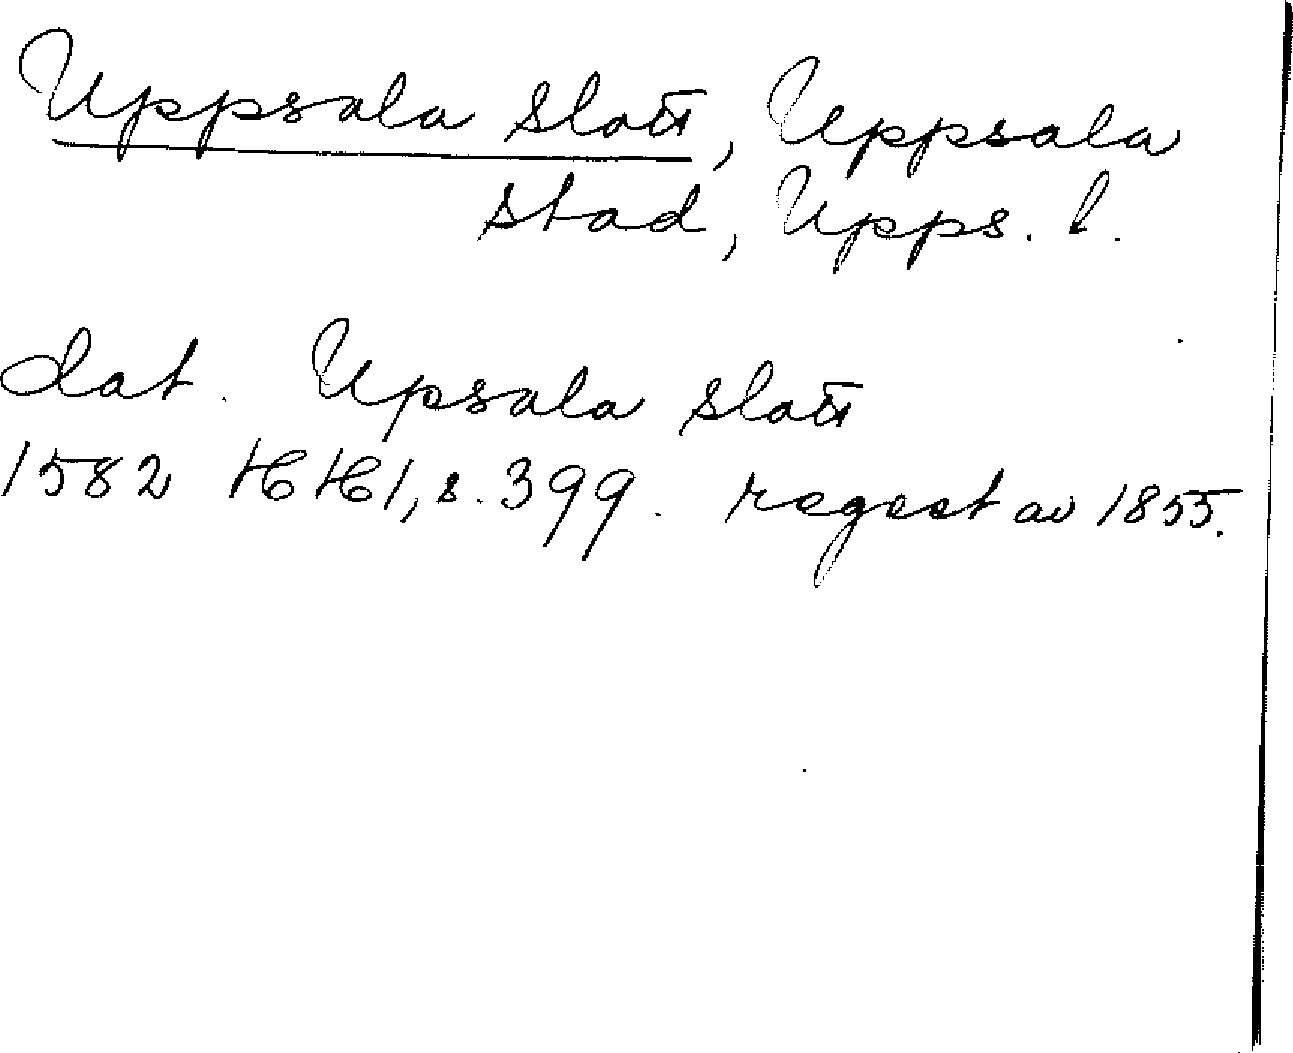 Uppsala slott, Uppsala
stad, Upps. l.
dat. Upsala slott
1582 HH1, s. 399. regest av 1855.